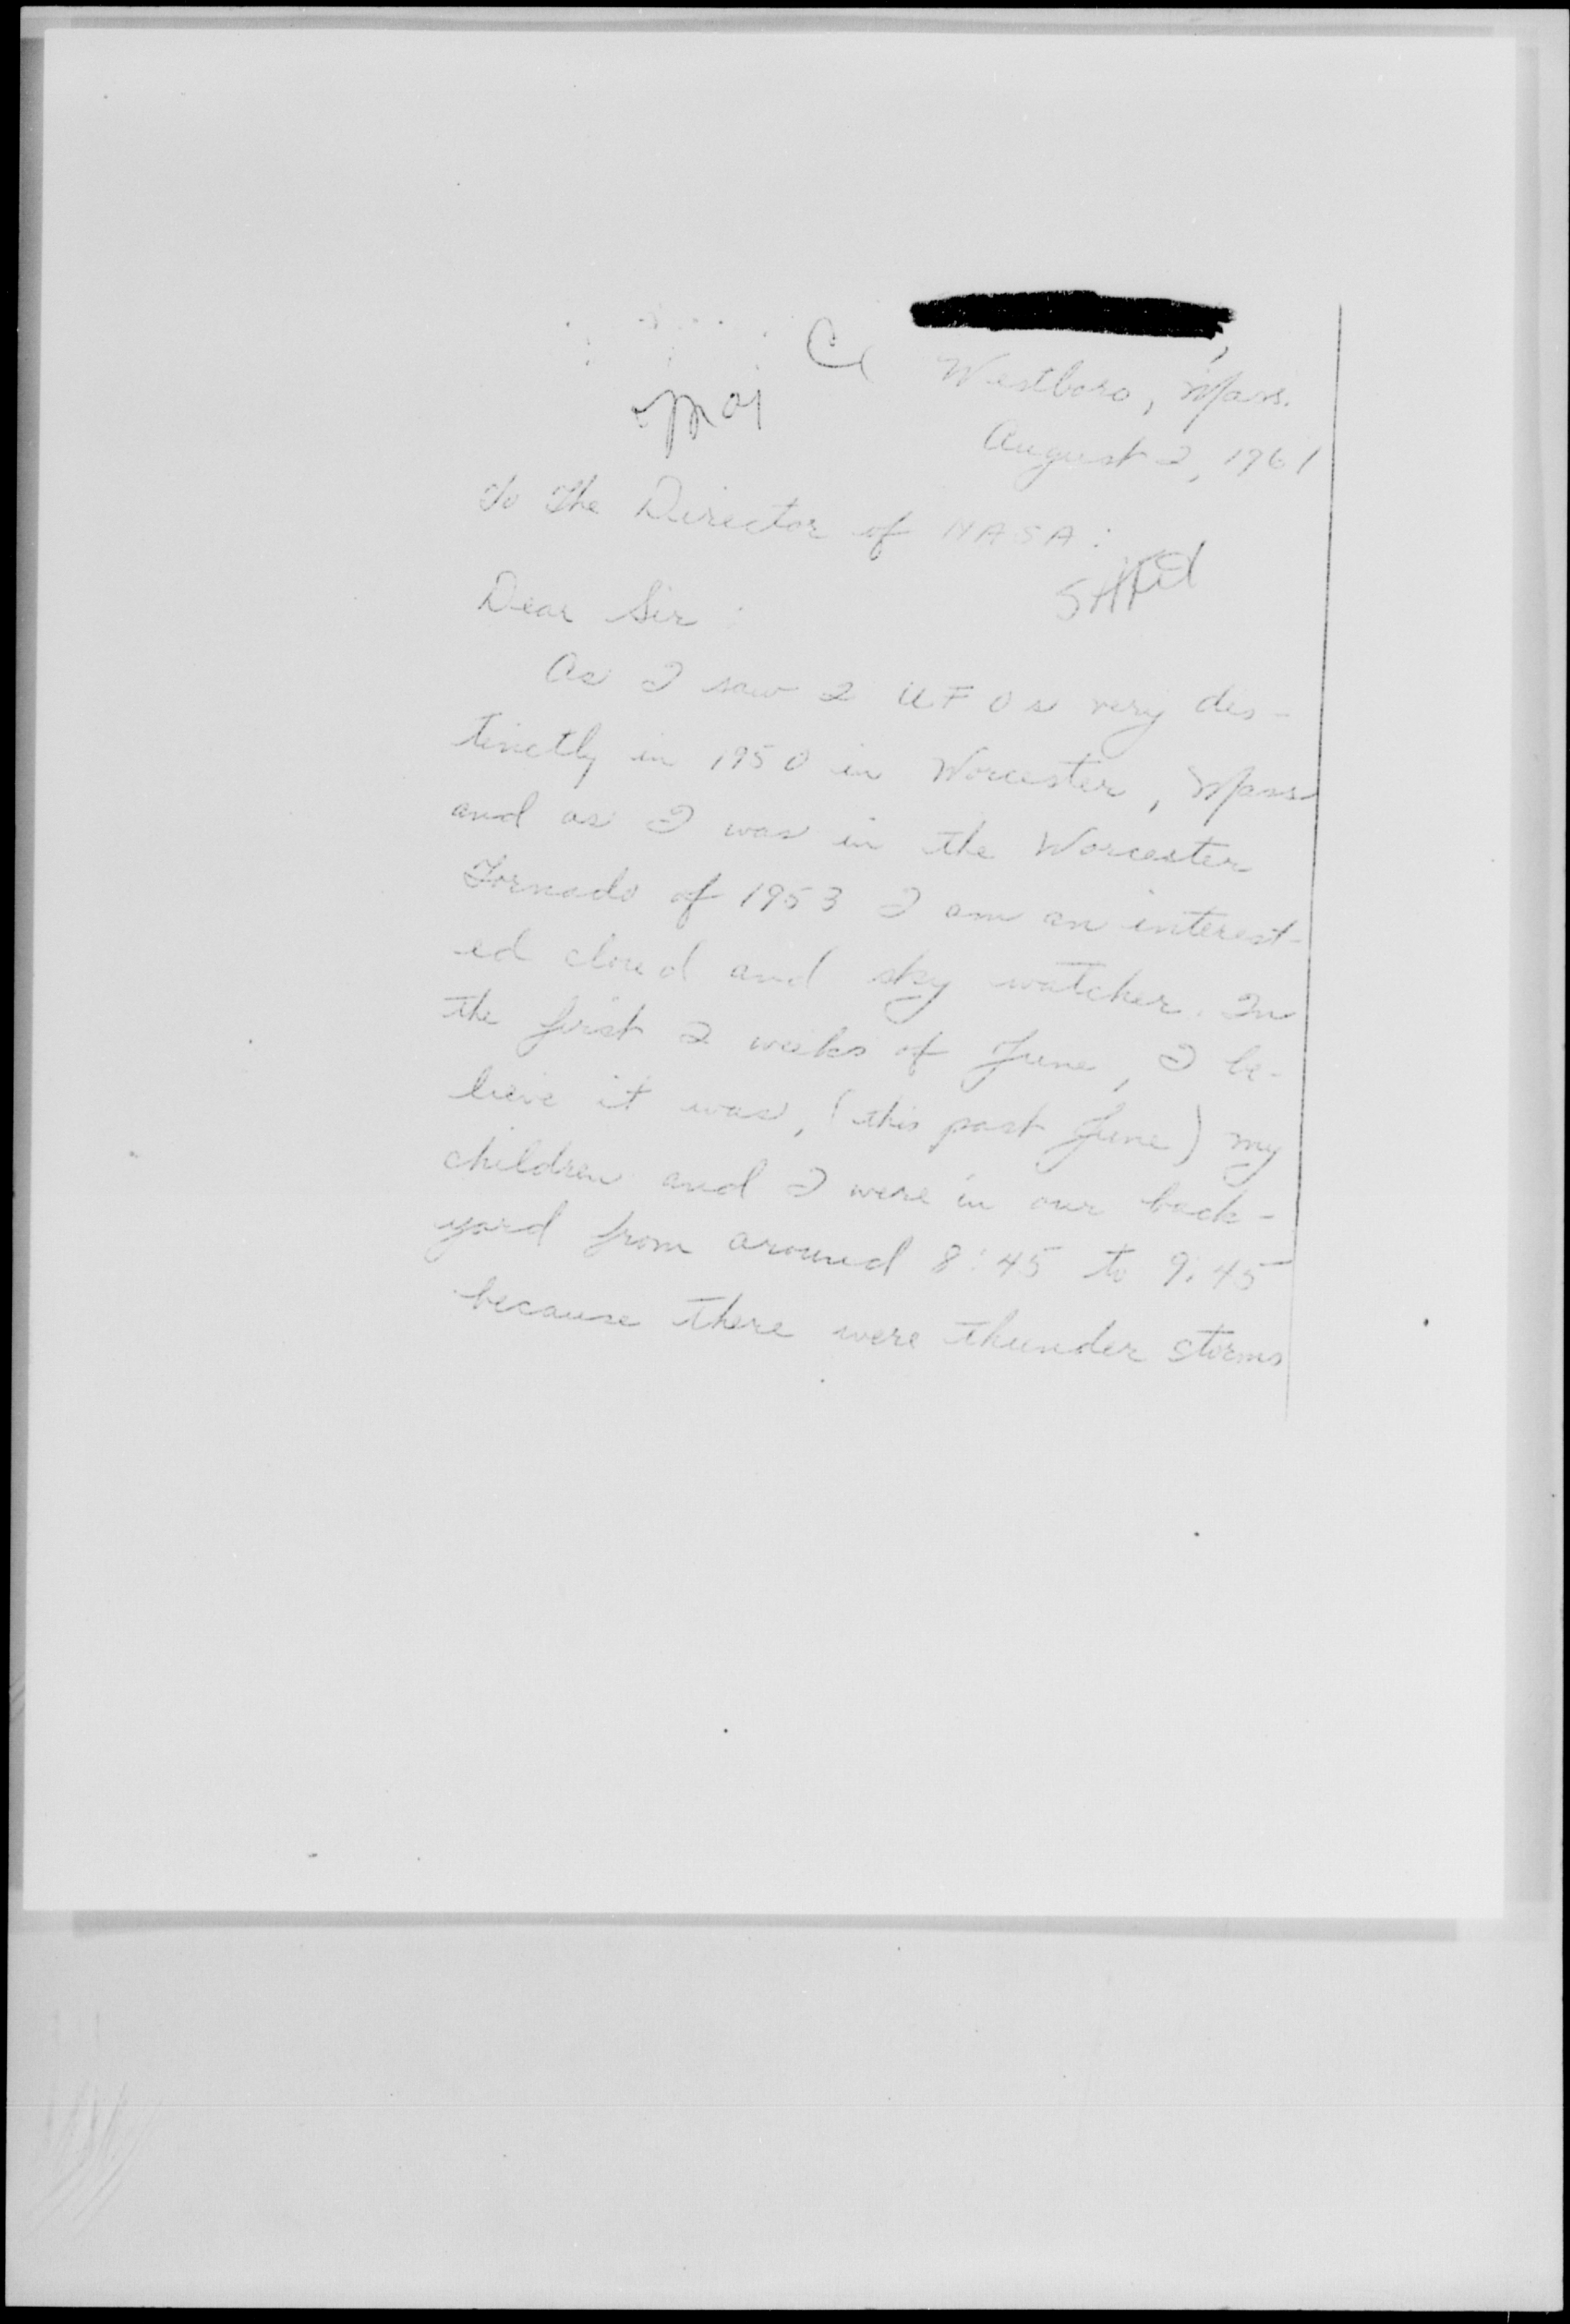 Westboro, Mass.
August 2, 1961
To The Director of NASA:
Dear Sir:
As I saw 2 UFOs very des-
tinctly in 1950 in Worcester, Mass
and as I was in the Worcester
Tornado of 1953 I am an interest-
ed cloud and sky watcher. In
the first 2 weeks of June, I be-
lieve it was, (this past June) my
children and I were in our back-
yard from around 8:45 to 9:45
because there were thunder storms